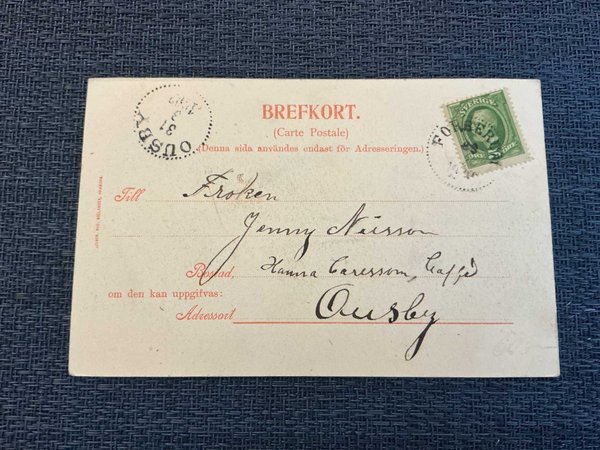 BREFKORT.
(Carte Postale)
(Denna sida användes endast för Adresseringen.)
OUSBY
31
SVERIGE
Till
Fröken
Jenny Nilsson
Bostad,
Hanna Carlsson, Caffé
om den kan uppgifvas:
Adressort
Ousby